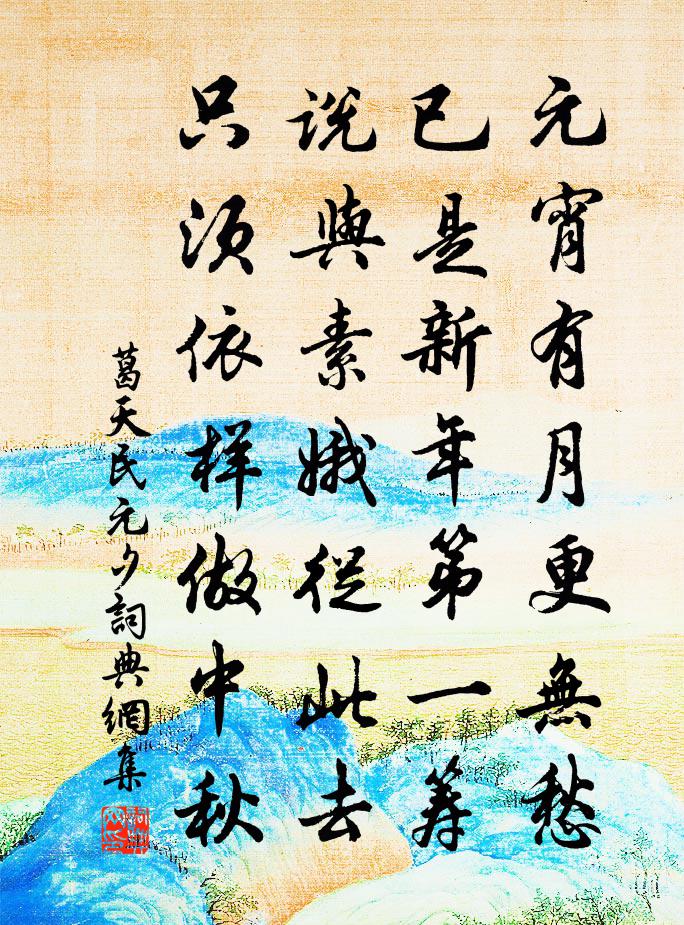 元宵有月更無愁
已是新年第一筹
説與素娥從此去
只須依样做中秋
葛天民元夕詞典網集